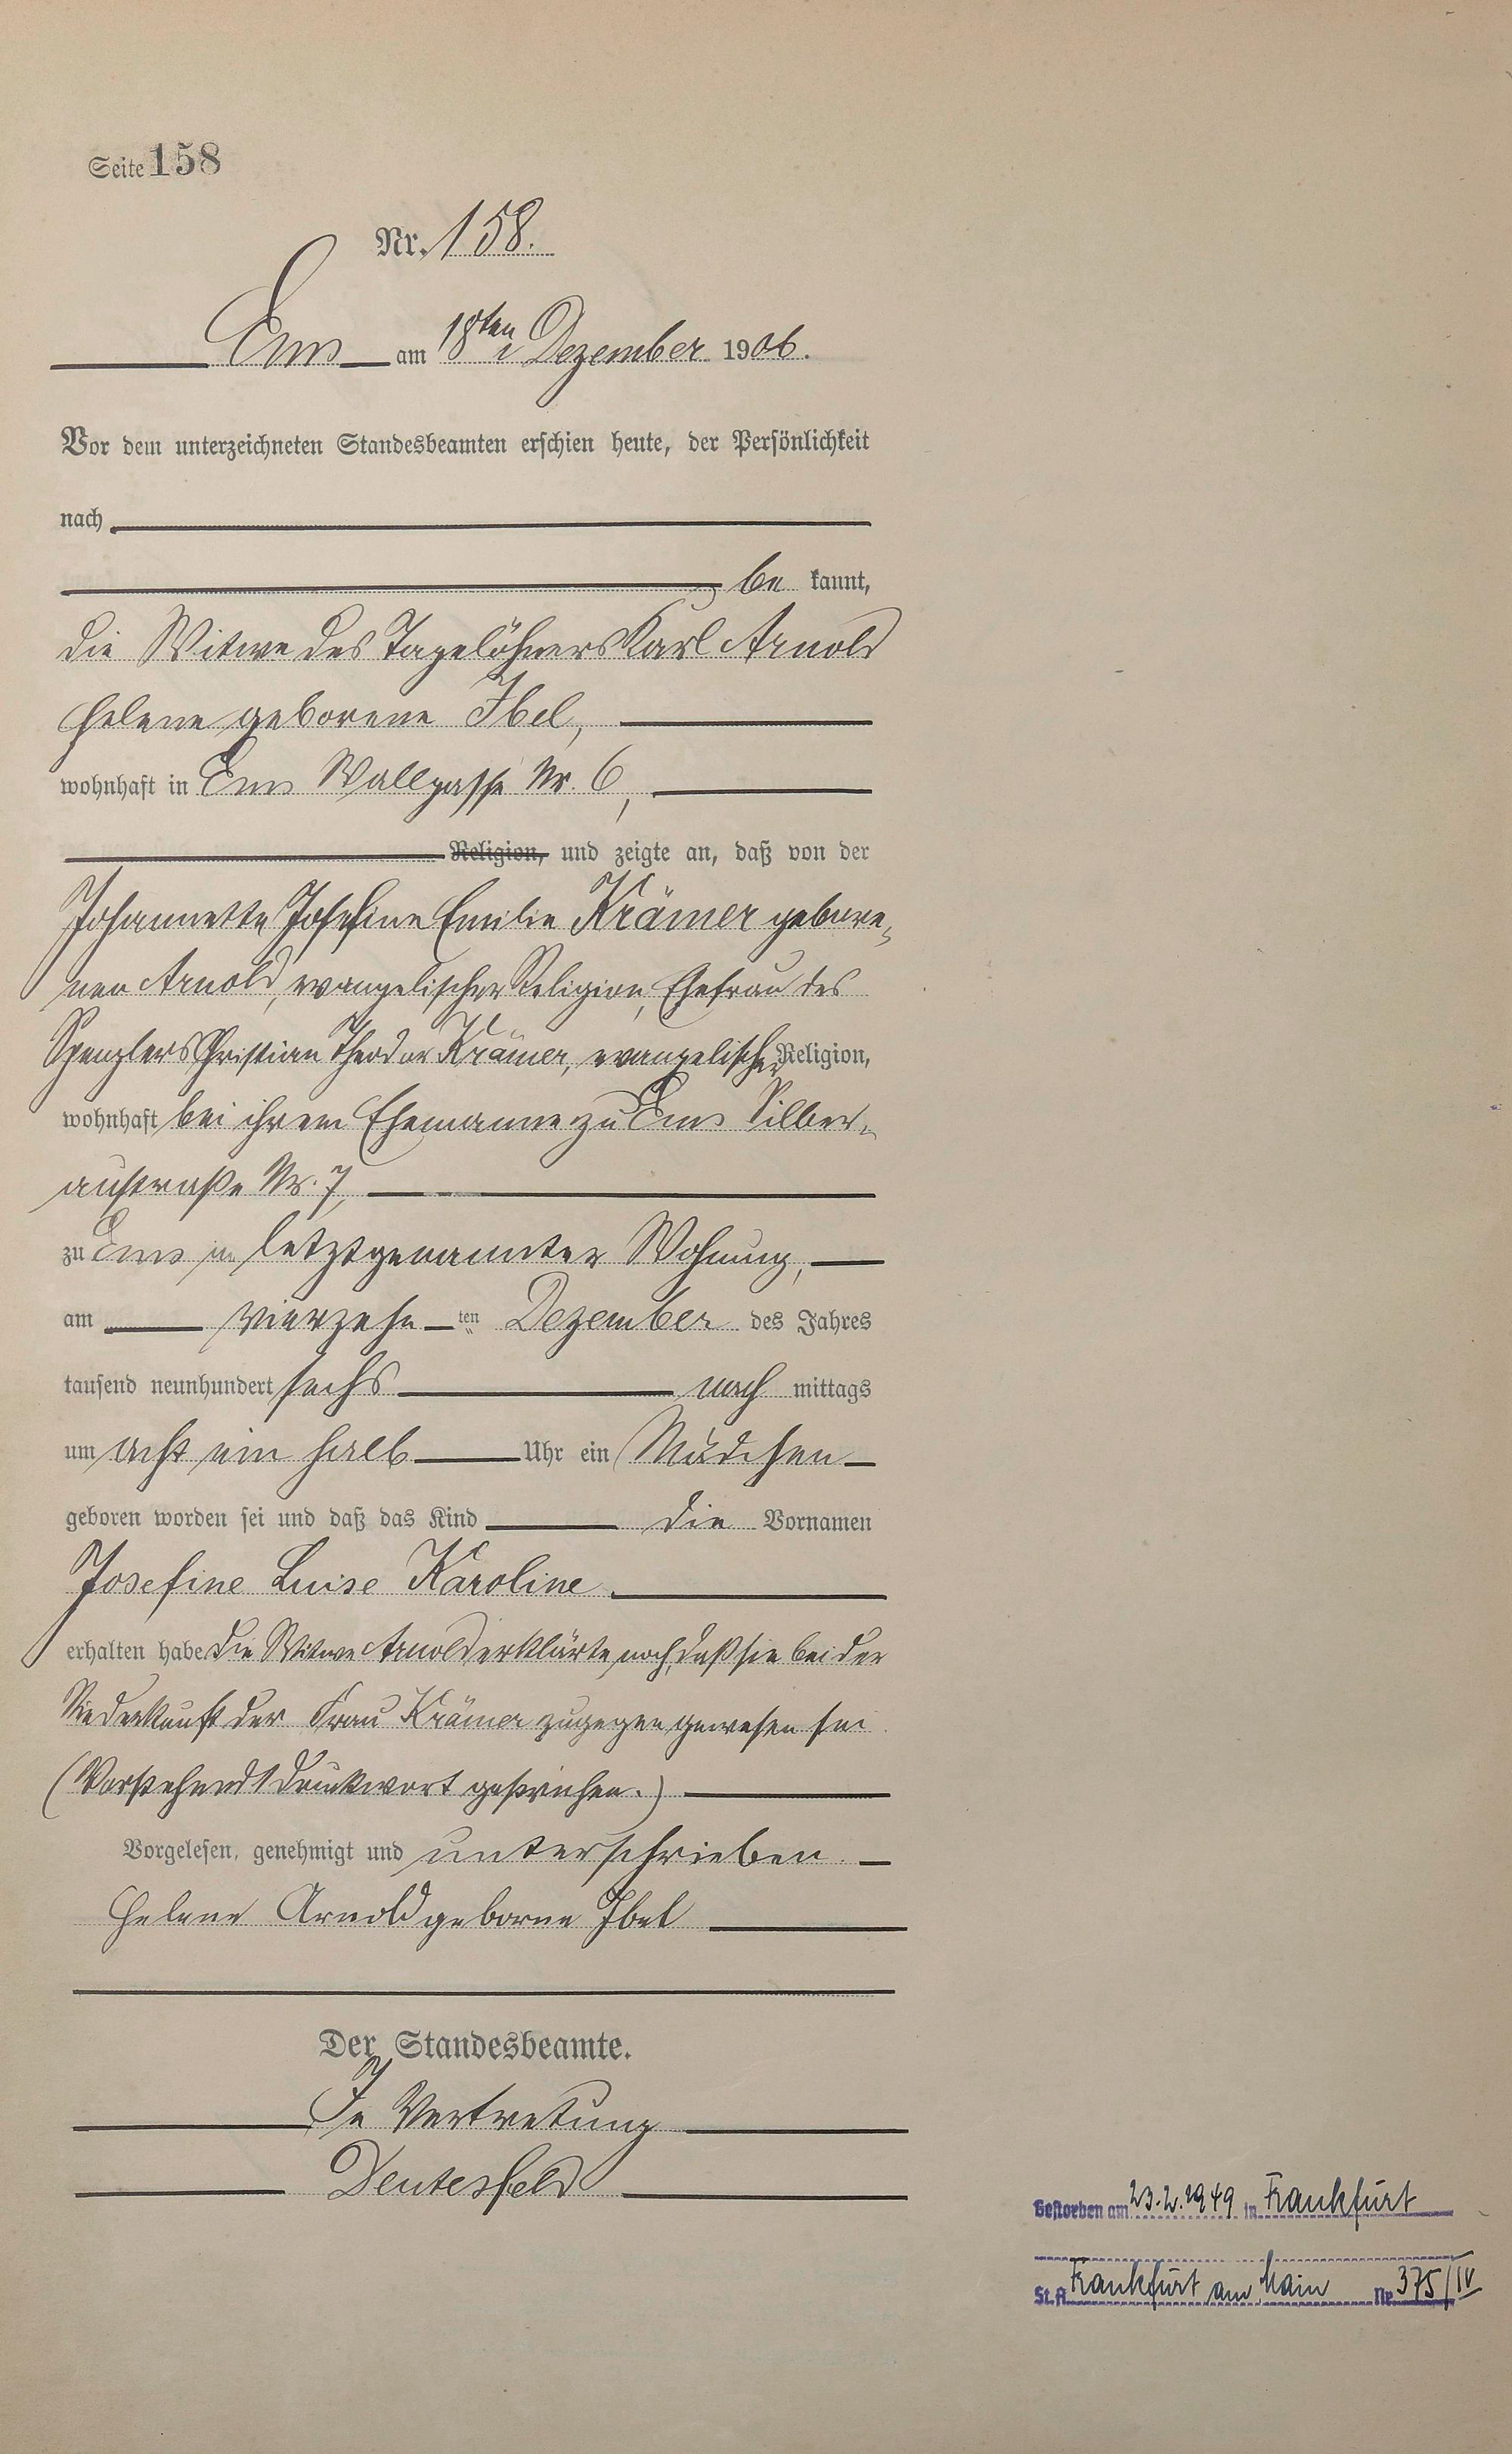 Seite 158
Nr. 158.
Ems am 18ten Dezember 1906.
Vor dem unterzeichneten Standesbeamten erschien heute, der Persönlichkeit
nach
be kannt,
die Witwe des Tagelöhners Karl Arnold
Helene geborene Ibel,
wohnhaft in Ems Wallgasse Nr. 6,
Religion, und zeigte an, daß von der
Johannette Josefine Emilie Krämer gebore„
nen Arnold, evangelischer Religion, Ehefrau des
Spenglers Christian Theodor Krämer, evangelischer Religion,
wohnhaft bei ihrem Ehemanne zu Ems Silber„
austraße Nr. 7,
zu Ems in letztgenannter Wohnung,
am vierzehn ten Dezember des Jahres
tausend neunhundert sechs nach mittags
um acht ein halb Uhr ein Mädchen
geboren worden sei und daß das Kind die Vornamen
Josefine Luise Karoline
erhalten habe Die Witwe Arnold erklärte noch, daß sie bei der
Niederkunft der Frau Krämer zugegen gewesen sei.
(Vorstehend 1 Druckwort gestrichen.)
Vorgelesen, genehmigt und unterschrieben.
Helene Arnold geborne Ibel
Der Standesbeamte.
In Vertretung
Deutesfeld
Gestorben am 23.2.1949 in Frankfurt
St.A. Frankfurt am Main Nr. 375/IV